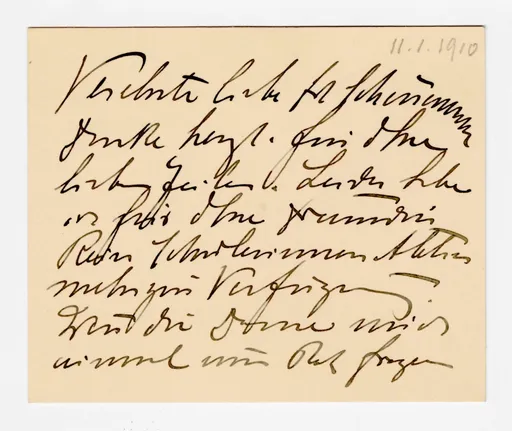 11.1.1910
Verehrte liebe Frl
Danke herzl. für Ihre
lieben Zeilen. Leider habe
ich für Ihre Freundin
kein Schülerinnen
mehr zur Verfügung
Will die Dame mich
einmal um Rat fragen